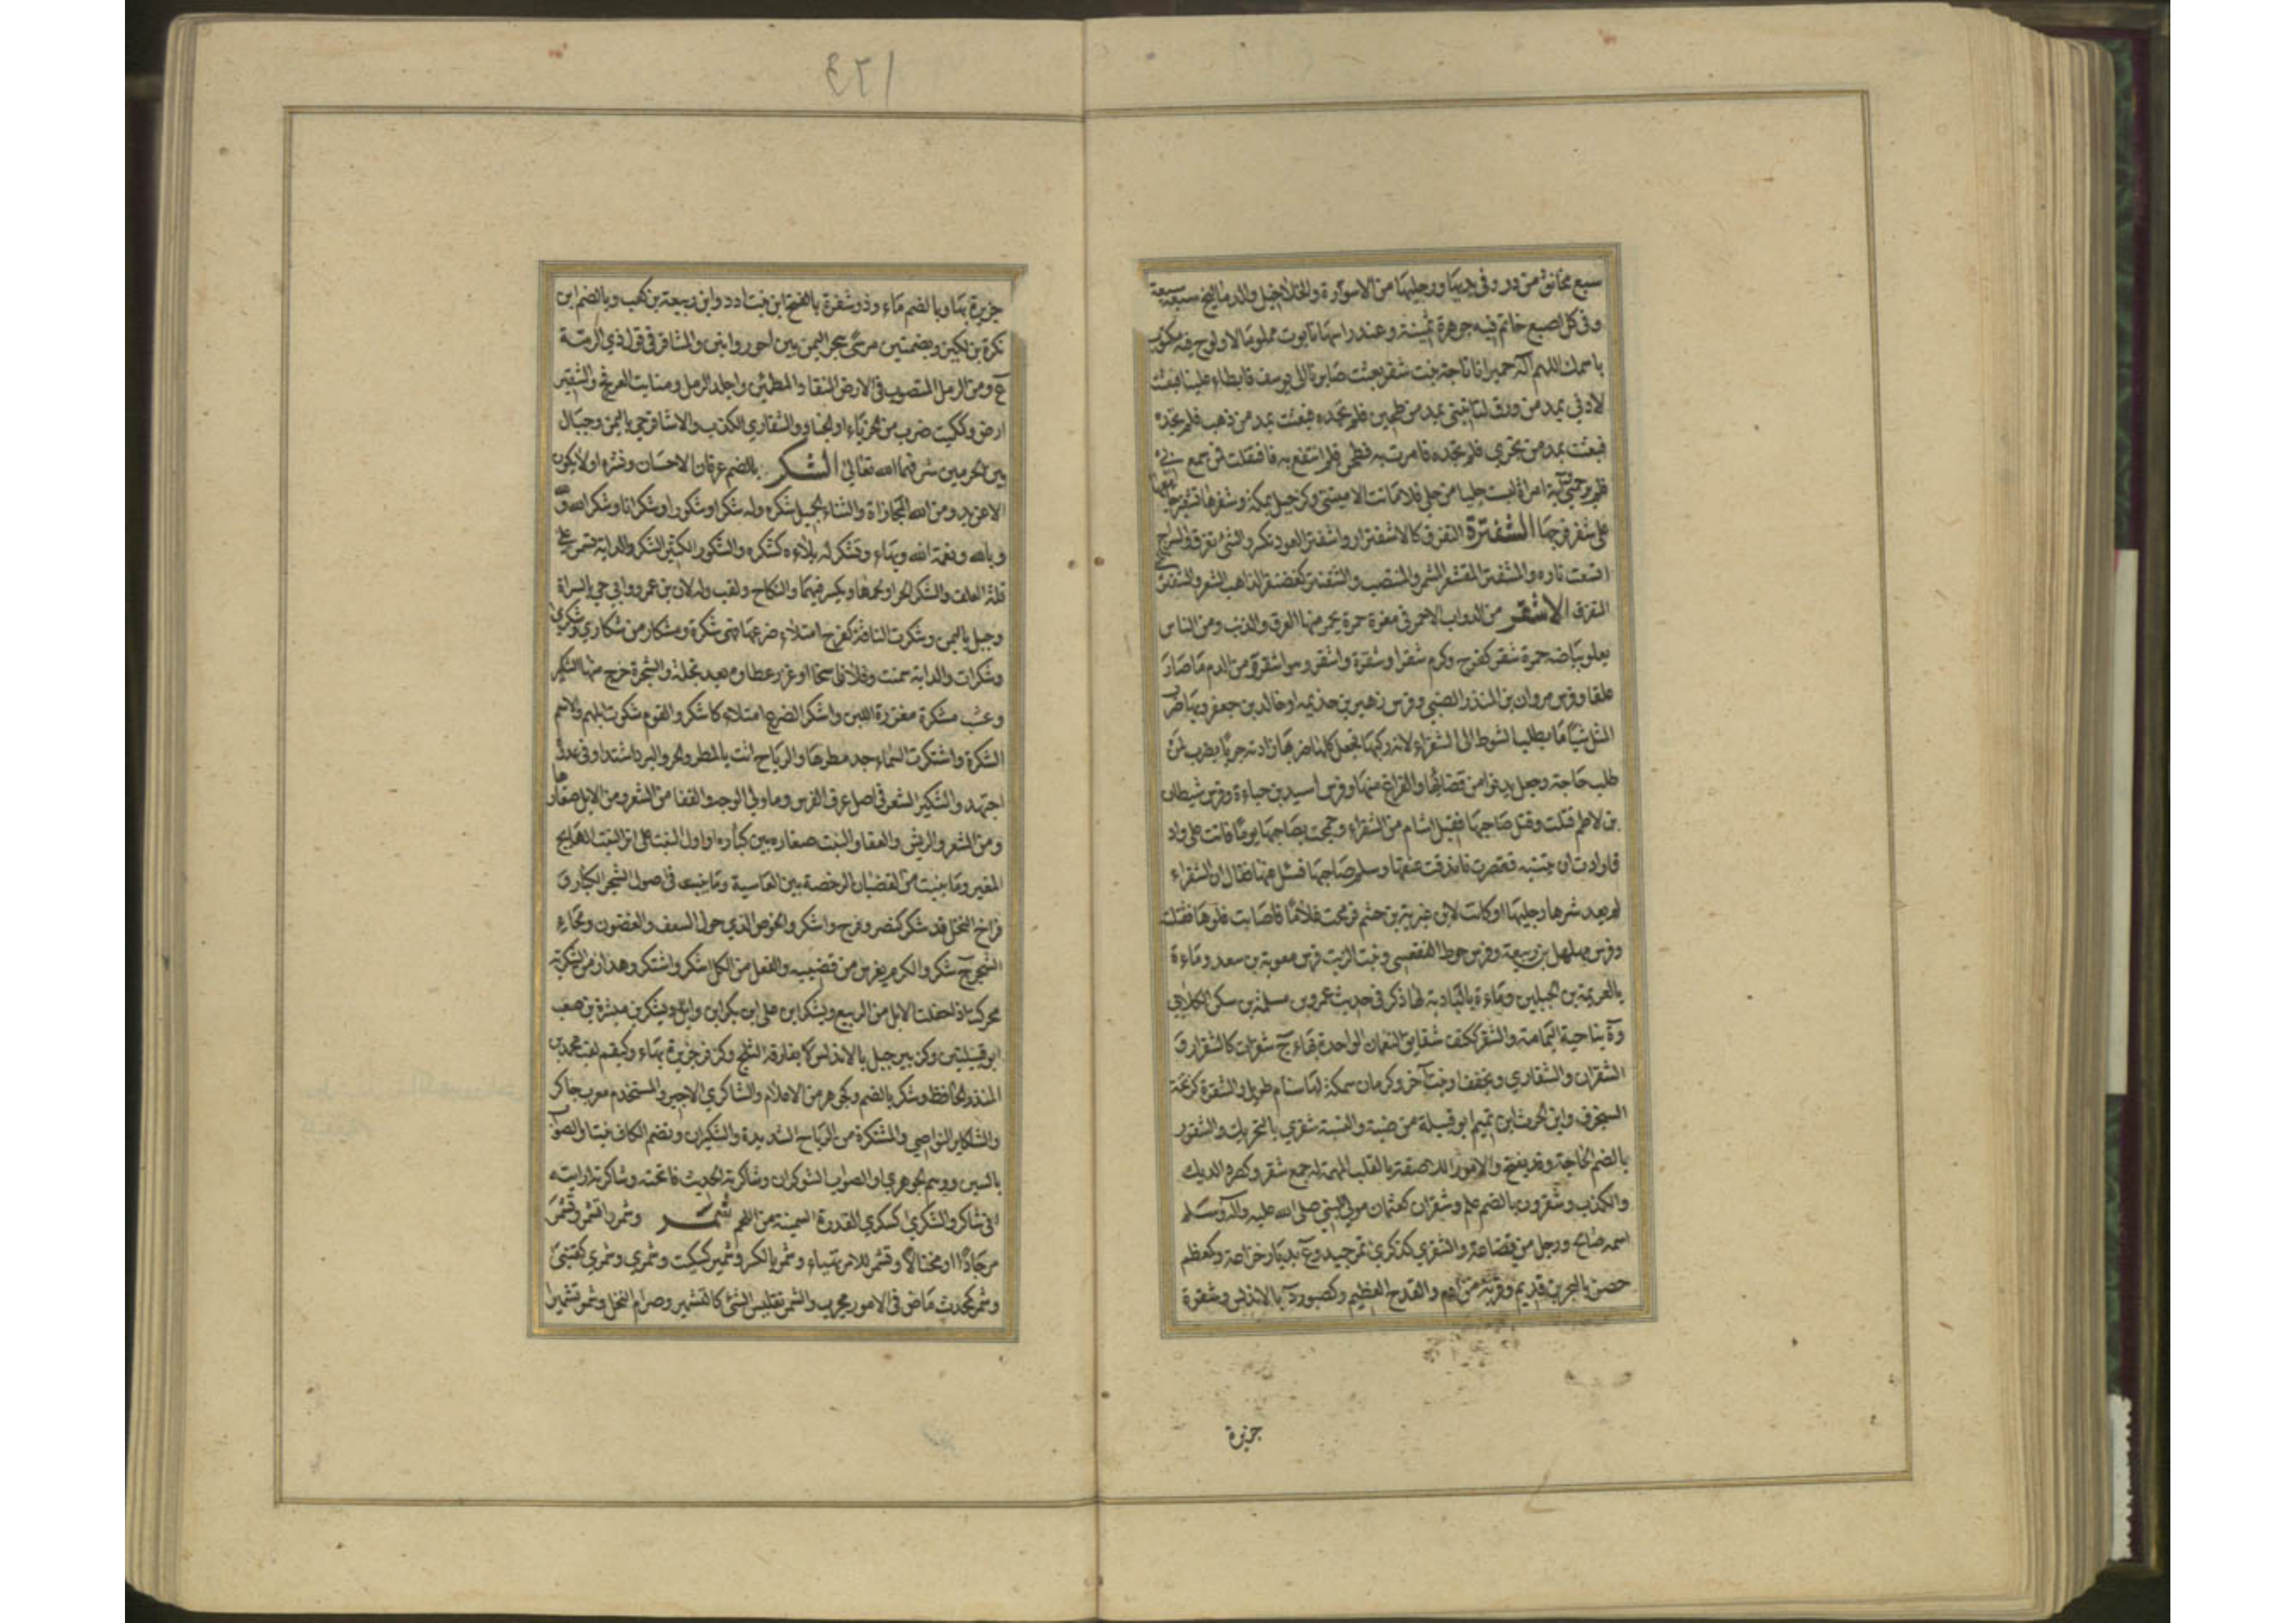 سبع مخانق من در وفي يديها ورجليها من الاسورة والخلاخيل والدماليج سبعة سبعة
وفي كل اصبع خاتم فيه جوهرة ثمينة وعند راسها تابوت مملو مالا ولوح فيه مكتوب
باسمك اللهم اله حمير انا تاجة بنت شفر بعثت مايرنا الى يوسف فابطاء علينا فبعثت
لاذتي بمد من ورق لتاتيني بمد من طحين فلم تجده فبعثت بمد من ذهب فلم تجده
فبعثت بمد من بحري فلم تجده فامرت به فطحن فلم انتفع به فاقتفلت فمن سمع بي
فليرحمني واية امراة لبست حليا من حلي فلا ماتت الا ميتتي وكزبيل بمكة وشفرها تشفيرا جامعها
على شفر فرجها الشفترة التفرق كالاشفترار واشفتر العود تكسر والشئ تفرق والسراج
اتسعت ناره والمشفتر المقشعر المشمر والمنتصب والشفنتر كغضنفر الذاهب الشعر والشفتر
المتفرق الاشقر من الدواب الاحمر في مغرة حمرة يحمر منها العرف والذنب ومن الناس
يعلو بياضه حمرة شقر كفرح وكرم شقرا وشقرة واشقر وهو اشقر ومن الدم ما صار
علقا وفرس مروان بن المنذر الضبي وفرس زهير بن جذيمه او خالد بن جعفر وبها ضرب
المثل شيئا ما يطلب السوط الى الشقراء لانه ركبها فجعل كلما ضربها زادته جريا يضرب لمن
طلب حاجة وجعل يدنو من قضائها والفراغ منها وفرس اسيد بن حناءة وفرس شيطان
بن لاطم قتلت وقتل صاحبها فقيل اشام من الشقراء وجمحت بصاحبها يوما فاتت على واد
فارادت ان تثبه فقصرت فاندقت عنقها وسلم صاحبها فسئل عنها فقال ان الشقراء
لم يعد شرها رجليها او كانت لابن غزية بن جشم فرمحت غلاما فاصابت فلوها فقتلته
وفرس مهلهل بن ربيعة وفرس حوط الفقعسي وبنت الزيت فرس معوية بن سعد وماءة
بالعريمة بين الجبلين وماءة بالبادية لها ذكر في حديث عمرو بن سلمة بن سكن الكلابي
وة بناحية اليمامة والشقر ككتف شقايق النعمان الواحدة بهاء ج شقرات كالشقار و
الشقران والشقاري ويخفف او نبت اخر وكرمان سمكة لها سنام طويل والشقرة كزنخة
السنجرف وابن الحرث ابن تميم ابو قبيلة من ضبة والنسبة شقري بالتحريك والشقور
بالضم الحاجة وقد يفتح والامور اللاصقة بالقلب المهمة له جمع شقر وكصرد الديك
والكذب وشقرون بالضم علم وشقران كعثمان مولى النبي صلى الله عليه واله وسلم
اسمه صالح ورجل من قضاعة والشقرى كذكرى تمر جيد وع بديار خزاعة وكمعظم
حصن بالبحرين قديم وقربة من ادم والقدح العظيم وكصبور د بالاندلس وشقرة
جزيرة
٤٢١
جزيرة بها وبالضم ماء وذو شقرة بالفتح ابن نبت ادد وابن ربيعة بن كعب وبالضم ابن
نكرة بن لكيز وبضمتين مرسى ببحر اليمن بين احور وابين والمشاقر في قول ذي الرمة
ع ومن الرمل المتصوب في الارض المنقاد المطمئن واجلد الرمل ومنابت العرفج والشقير
ارض وككميت ضرب من الحرباء او الجنادب والشقاري الكذب والاشاقر حي باليمن وجبال
بين الحرمين شرفهما الله تعالى الشكر بالضم عرفان الاحسان ونشره او لا يكون
الا عن يد ومن الله المجازاة والثناء الجميل شكره وله شكرا وشكورا وشكرانا وشكر الله ولله
وبالله ونعمة الله وبها وتشكر له بلاءه كشكره والشكور الكثير الشكر والدابة تسمن على
قلة العلف والشكر الحر او لحمها ويكسر فيهما والنكاح ولقب والان بن عمرو وابي حي بالسراة
وجبل باليمن وشكرت الناقة كفرح امتلاء ضرعها فهي شكرة ومشكار من شكاري وشكرى
وشكرات والدابة سمنت وفلان سخا او غزر عطاوه بعد بخله والشجرة خرج منها الشكير
وعشب مشكرة مغزرة اللبن واشكر الضرع امتلاء كاشتكر والقوم شكرت ابلهم والاسم
الشكرة واشتكرت السماء جد مطرها والرياح اتت بالمطر والحر والبرد اشتدا وفي عدوه
اجتهد والشكير الشعر في اصل عرف الفرس وما ولي الوجه والقفا من الشعر ومن الابل صغارها
ومن الشعر والريش والعفا والنبت صغاره بين كباره او اول النبت على اثر النبت الهايج
المغبر وما ينبت من القضبان الرخصة بين العاسية وما ينبت في اصول الشجر الكبار و
فراخ النخل قد شكر كنصر وفرح واشكر والخوص الذي حول السعف والغصون ولحاء
الشجر ج شكر والكرم يغرس من قضيبه والفعل من الكل اشكر واشتكر وهذا زمن الشكرية
محركة اذا حفلت الابل من الربيع ويشكر ابن علي ابن بكر ابن وائل ويشكر بن مبشرة بن صعب
ابو قبيلتين وكزبير جبل بالاندلس لا يفارقه الثلج وكزفر جزيرة بها وكبقم لقب محمد بن
المنذر الحافظ وشكر بالضم وكجوهر من الاعلام والشاكري الاجير والمستخدم معرب جاكر
والشكاير النواصي والمشتكرة من الرياح الشديدة والشيكران وتضم الكاف نبت او الصواب
بالسين ووهم الجوهري او الصواب الشوكران وشاكرته الحديث فاتحته وشاكرته اريته
اني شاكر والشكرى كسكرى القدرة السمينة من اللحم شمر وشمر وانشمر وتشمر
مر جادا او مختالا وتشمر للامر تهياء وشمر بالكسر وشمير كسكيت وشمري وشمري كقنبي
وشمر كمحدث ماض في الامور مجرب والشمر تقليص الشئ كالتشمير وصرام النخل وشمر تشميرا